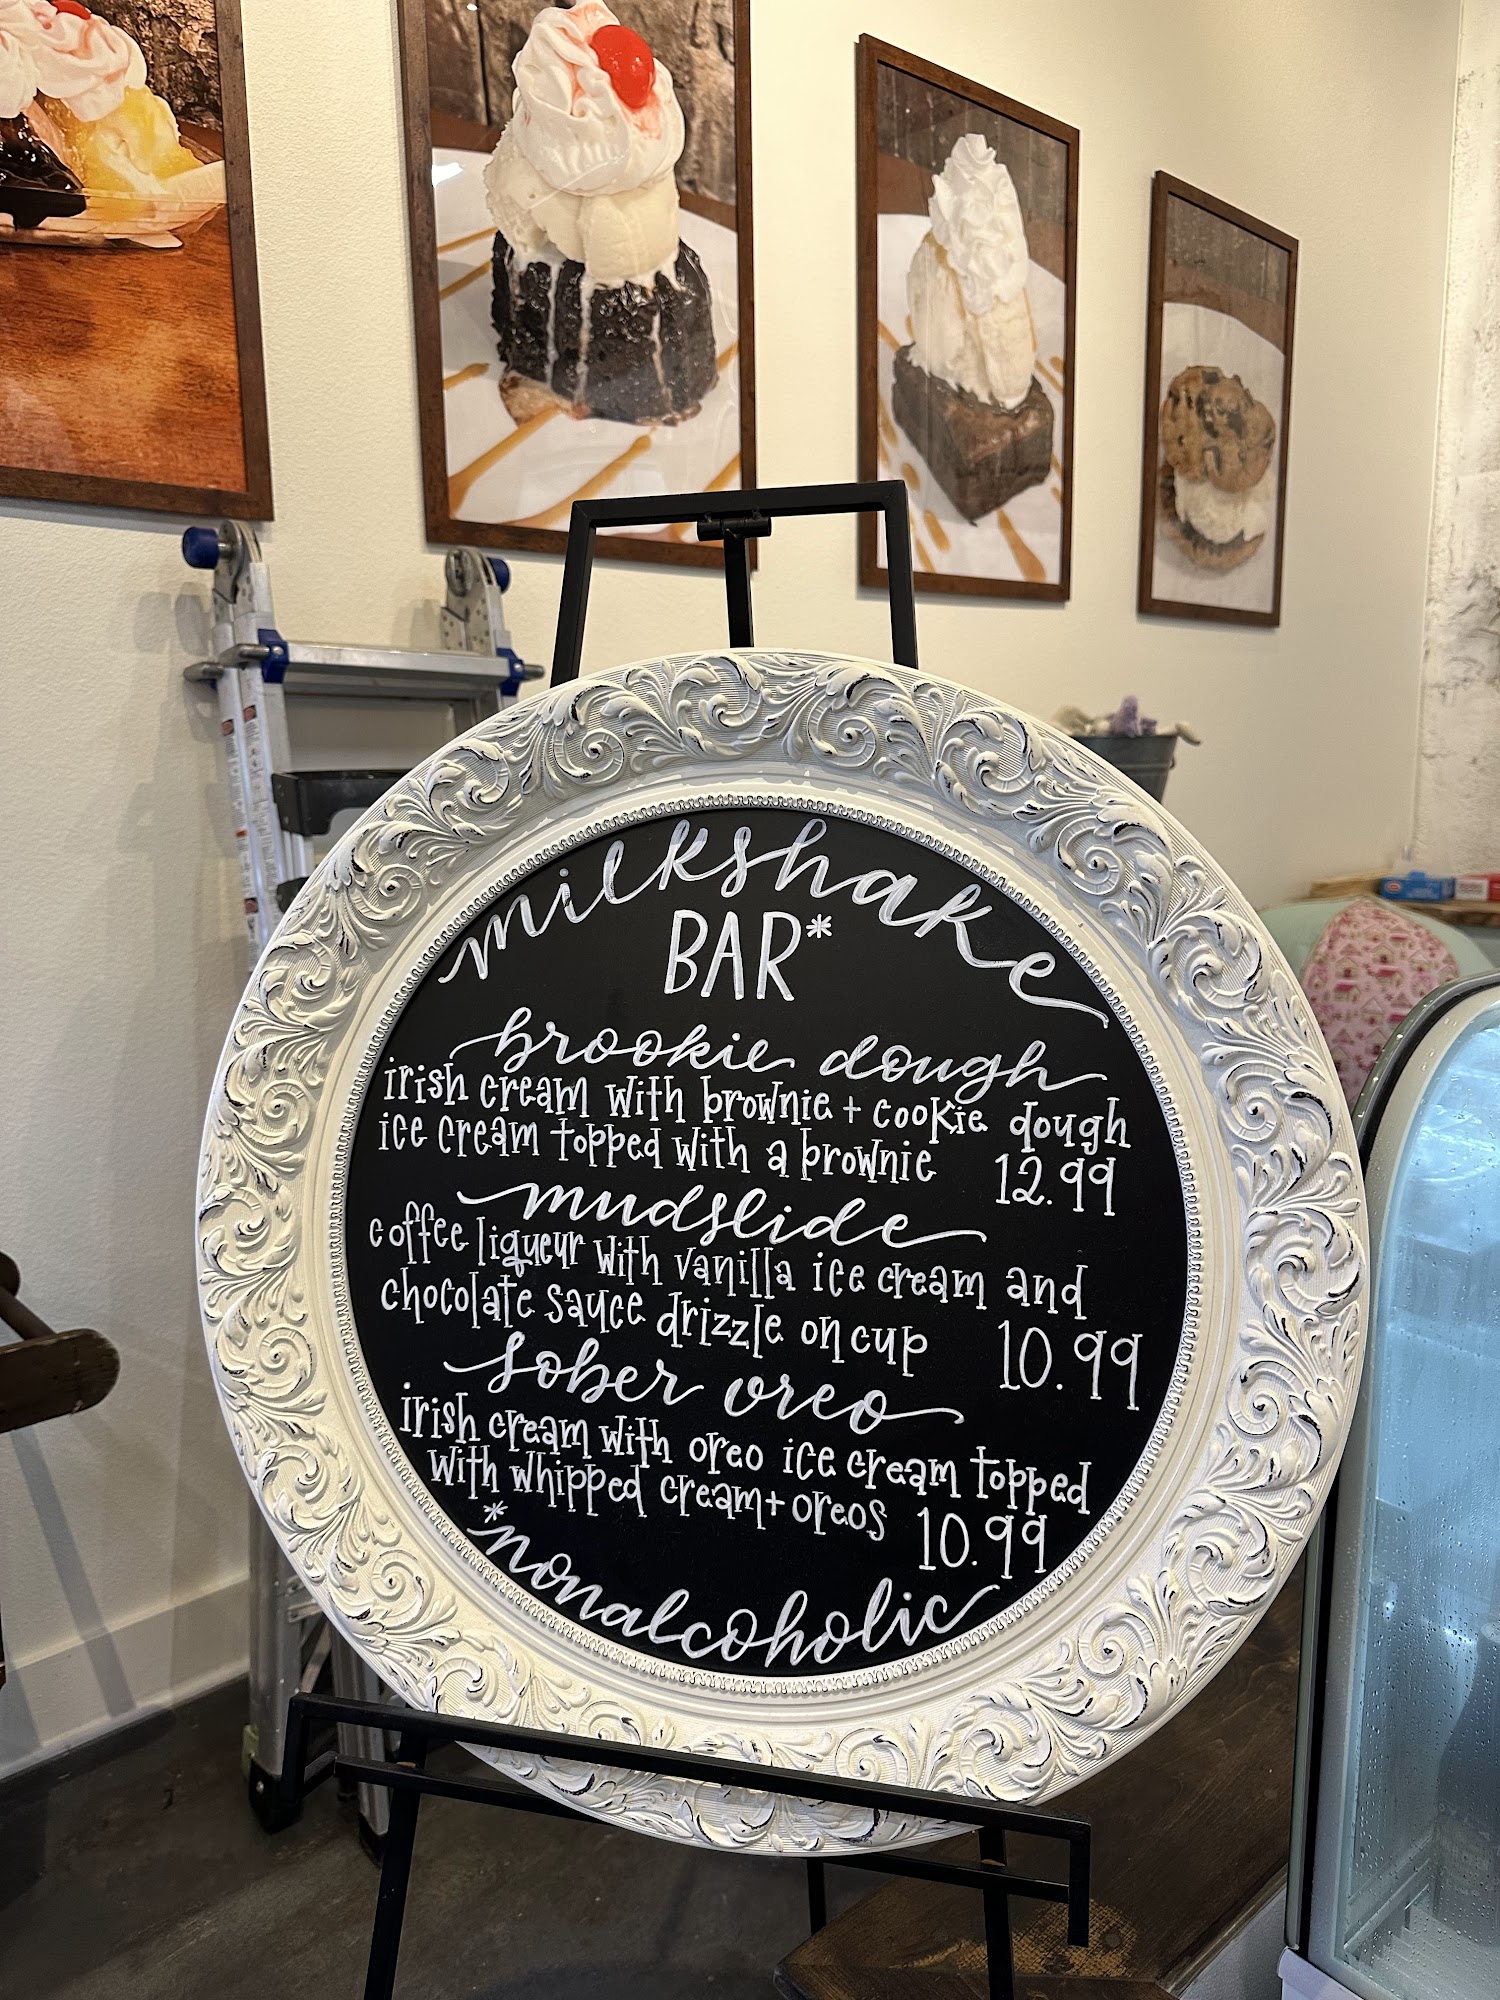 milkshake
BAR*
brookie dough
irish cream with brownie + cookie dough
ice cream topped with a brownie 12.99
mudslide
coffee liqueur with vanilla ice cream and
chocolate sauce drizzle on cup 10.99
sober oreo
irish cream with oreo ice cream topped
with whipped cream + oreos 10.99
*nonalcoholic